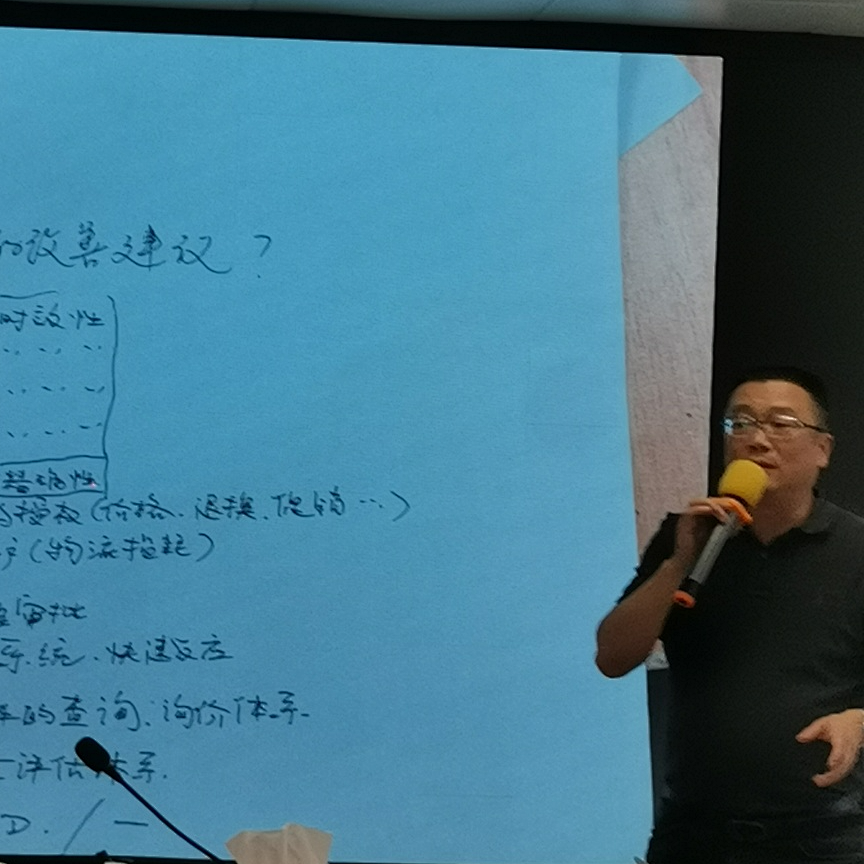 的改善建议？
时效性
精确性
授权（价格、退换、促销…）
户（物流损耗）
审批
系统、快速反应
的查询、询价体系
评估体系.
D. / 一